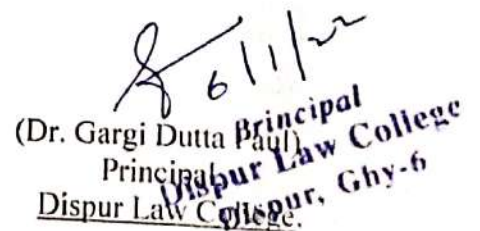 6/1/22
(Dr. Gargi Dutta Paul)
Principal
Dispur Law College.
Principal
Dispur Law College
Dispur, Ghy-6